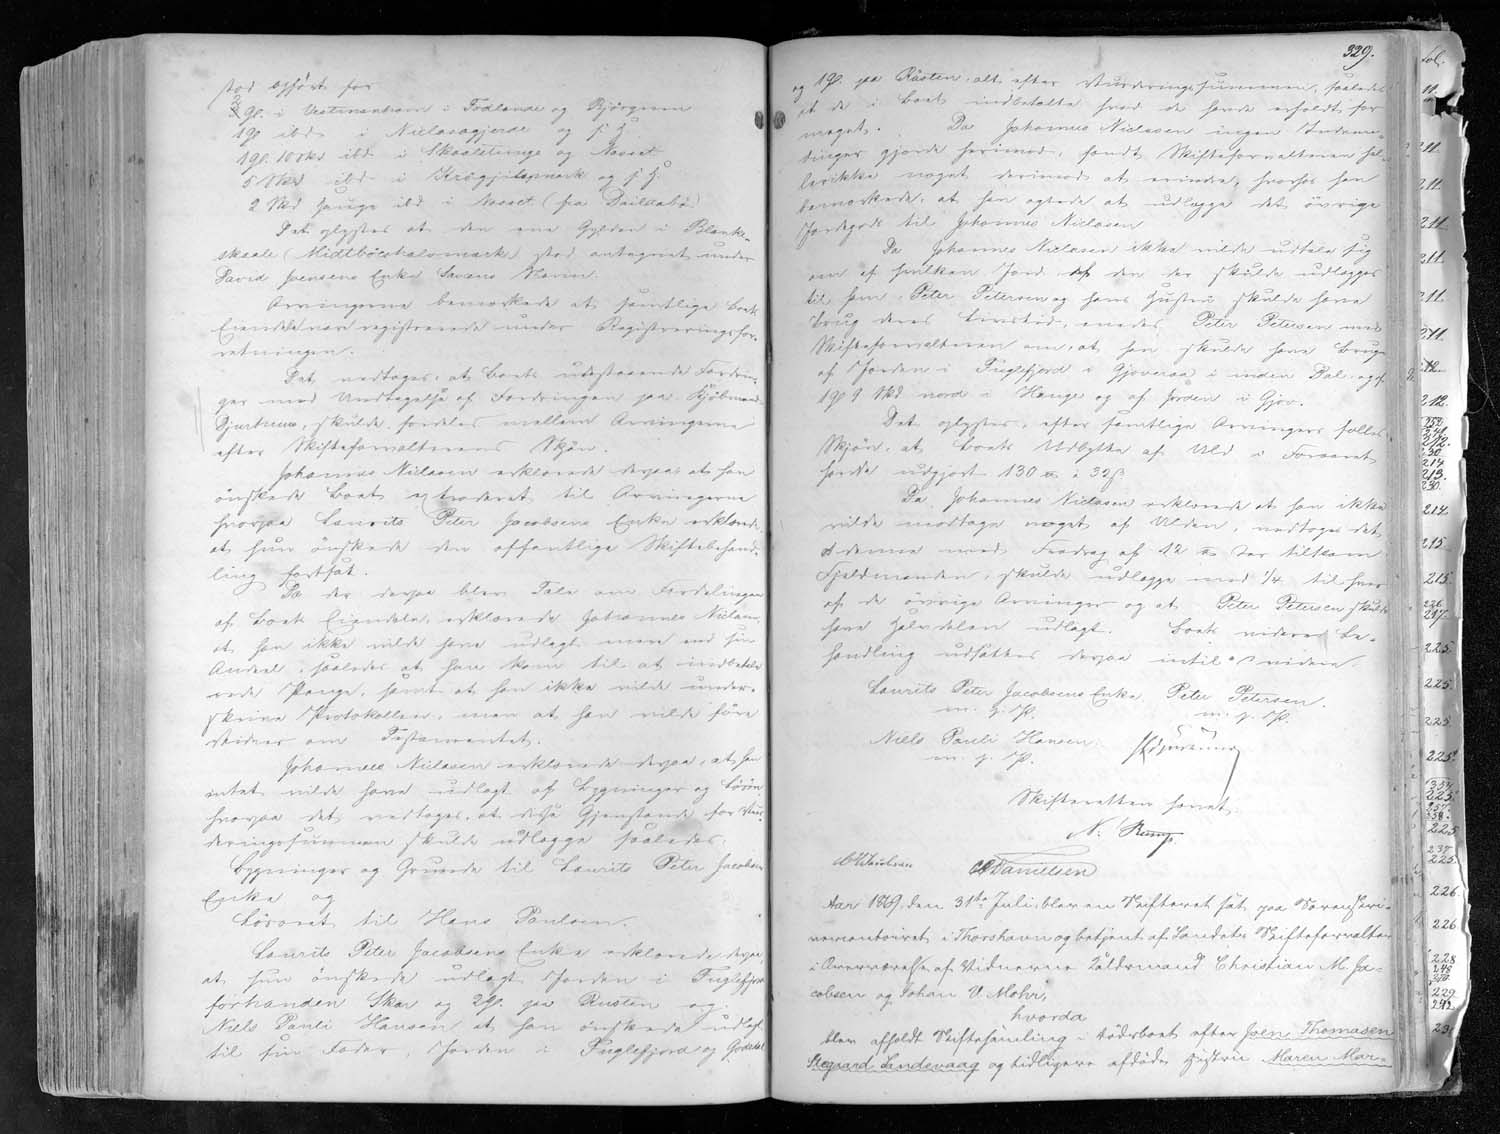 stod opført for
2 gl. i Vestmanhavn i Fodlande og Bjørgeven
1 gl ibd i Niclasagjerde og j. H.
1 gl. 10 skd ibd i Skaaletunge og Nasset
5 Skd ibd i Krøgjilsmark og j. H.
2 Skd Hauge ibd i Nasset (fra Dailabø)
Det oplystes at den ene Gylden i Blanke-
skaale (Midtbøvohalvmark) stod antegnet under
David Joensens Enke Savans Navn.
Arvingerne bemærkede at samtlige Boets
Eiendele var registrerede under Registreringsfor-
retningen.
Det vedtoges, at Boets udestaaende Fordrin-
ger med Undtagelse af Fordringen paa Kjøbmand
Djurhuus, skulde fordeles mellem Arvingerne
efter Skifteforvalterens Skjøn.
Johannes Niclasen erklærede derpaa at han
ønskede Boet extraderet til Arvingerne
hvorpaa Laurits Peter Jacobsens Enke erklærede,
at hun ønskede den offentlige Skiftebehand-
ling fortsat.
Da der derpaa blev Tale om Fordelingen
af Boets Eiendele, erklærede Johannes Niclasen,
at han ikke vilde have udlagt mere end sin
Andeel, saaledes at han kom til at indbetale
rede Penge, samt at han ikke vilde under-
skrive Protokollen, men at han vilde føre
Vidner om Testamentet.
Johannes Niclasen erklærede derpaa, at han
intet vilde have udlagt af Bygninger og Løsøre
hvorpaa det vedtoges, at disse Gjenstande for Vur-
deringssummen skulde udlægges saaledes.
Bygninger og Grunde til Laurits Peter Jacobsens
Enke og
Løsøret til Hans Poulsen.
Laurits Peter Jacobsens Enke erklærede derpaa,
at hun ønskede udlagt Jorden i Fuglefjord
forhanden Skar og 2 gl. paa Rusten og
Niels Pauli Hansen at han ønskede udlagt
til sin Fader, Jorden i Fuglefjord og Godedal
329.
og 1 gl. paa Råsten, alt efter Vurderingssummen, saaledes
at de i Boet indbetalte hvad de havde erholdt for
meget. Da Johannes Niclasen ingen Indven-
dinger gjorde herimod, fandt Skifteforvalteren hel-
ler ikke noget derimod at erindre, hvorhos han
bemærkede, at han agtede at udlægge det øvrige
Jordegods til Johannes Niclasen
Da Johannes Niclasen ikke vilde udtale sig
om af hvilken Jord af den der skulde udlægges
til ham, Peter Petersen og hans Hustru skulde have
Brug deres Livstid, enedes Peter Petersen med
Skifteforvalteren om, at han skulde have Brug
af Jorden i Fuglefjord i Gjøveraa i inden Dal og
1 gl 9 Skd nord i Hauge og af Jorden i Gjov.
Det oplystes, efter samtlige Arvingers fælles
Skjøn, at Boets Udbytte af Uld i Foraaret
havde udgjort 130 ℔ à 32 ß
Da Johannes Niclasen erklærede at han ikke
vilde modtage noget af Ulden, vedtoges det
at denne med Fradrag af 12 ℔ der tilkom
Fjeldmanden, skulde udlægges med 1/4 til hver
af de øvrige Arvinger og at Peter Petersen skulde
have Halvdelen udlagt. Boets videre Be-
handling udsattes derpaa indtil videre
Laurits Peter Jacobsens Enke Peter Petersen.
m. f. P. m. f. P.
Niels Pauli Hansen HDjurhuus
m. f. P.
Skifteretten hævet.
N. Rump
Danielsen
Aar 1869, den 31te Juli, blev en Skifteret sat paa Sorenskri-
vercontoiret i Thorshavn og betjent af Landets Skifteforvalter
i Overværelse af Vidnerne Løldermand Christian M. Ja-
cobsen og Johan V. Mohr,
hvorda
blev afholdt Skiftesamling i Dødsboet efter Joen Thomasen
Stegaard Sandevaag og tidligere afdøde Hustru Maren Mar-